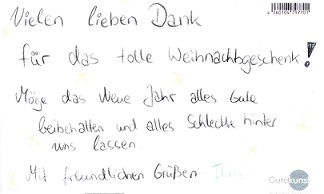 Vielen lieben Dank
für das tolle Weihnachtsgeschenk!
Möge das Neue Jahr alles Gute
beibehalten und alles Schlechte hinter
uns lassen.
Mit freundlichen Grüßen
Gutekunst